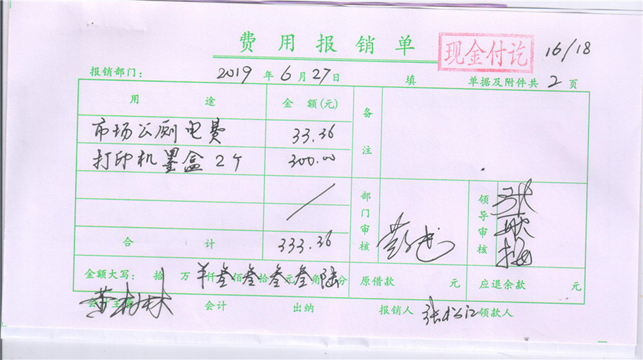 费用报销单
现金付讫
16/18
报销部门： 2019 年 6 月 27 日 填 单据及附件共 2 页
用途 金额(元) 备注
市场公厕电费 33.36
打印机墨盒 2个 300.00
部门审核 领导审核
合计 333.36
金额大写： 拾 万 仟 叁 佰 叁 拾 叁 元 叁 角 陆 分 原借款 元 应退余款 元
会计 出纳 报销人 领款人